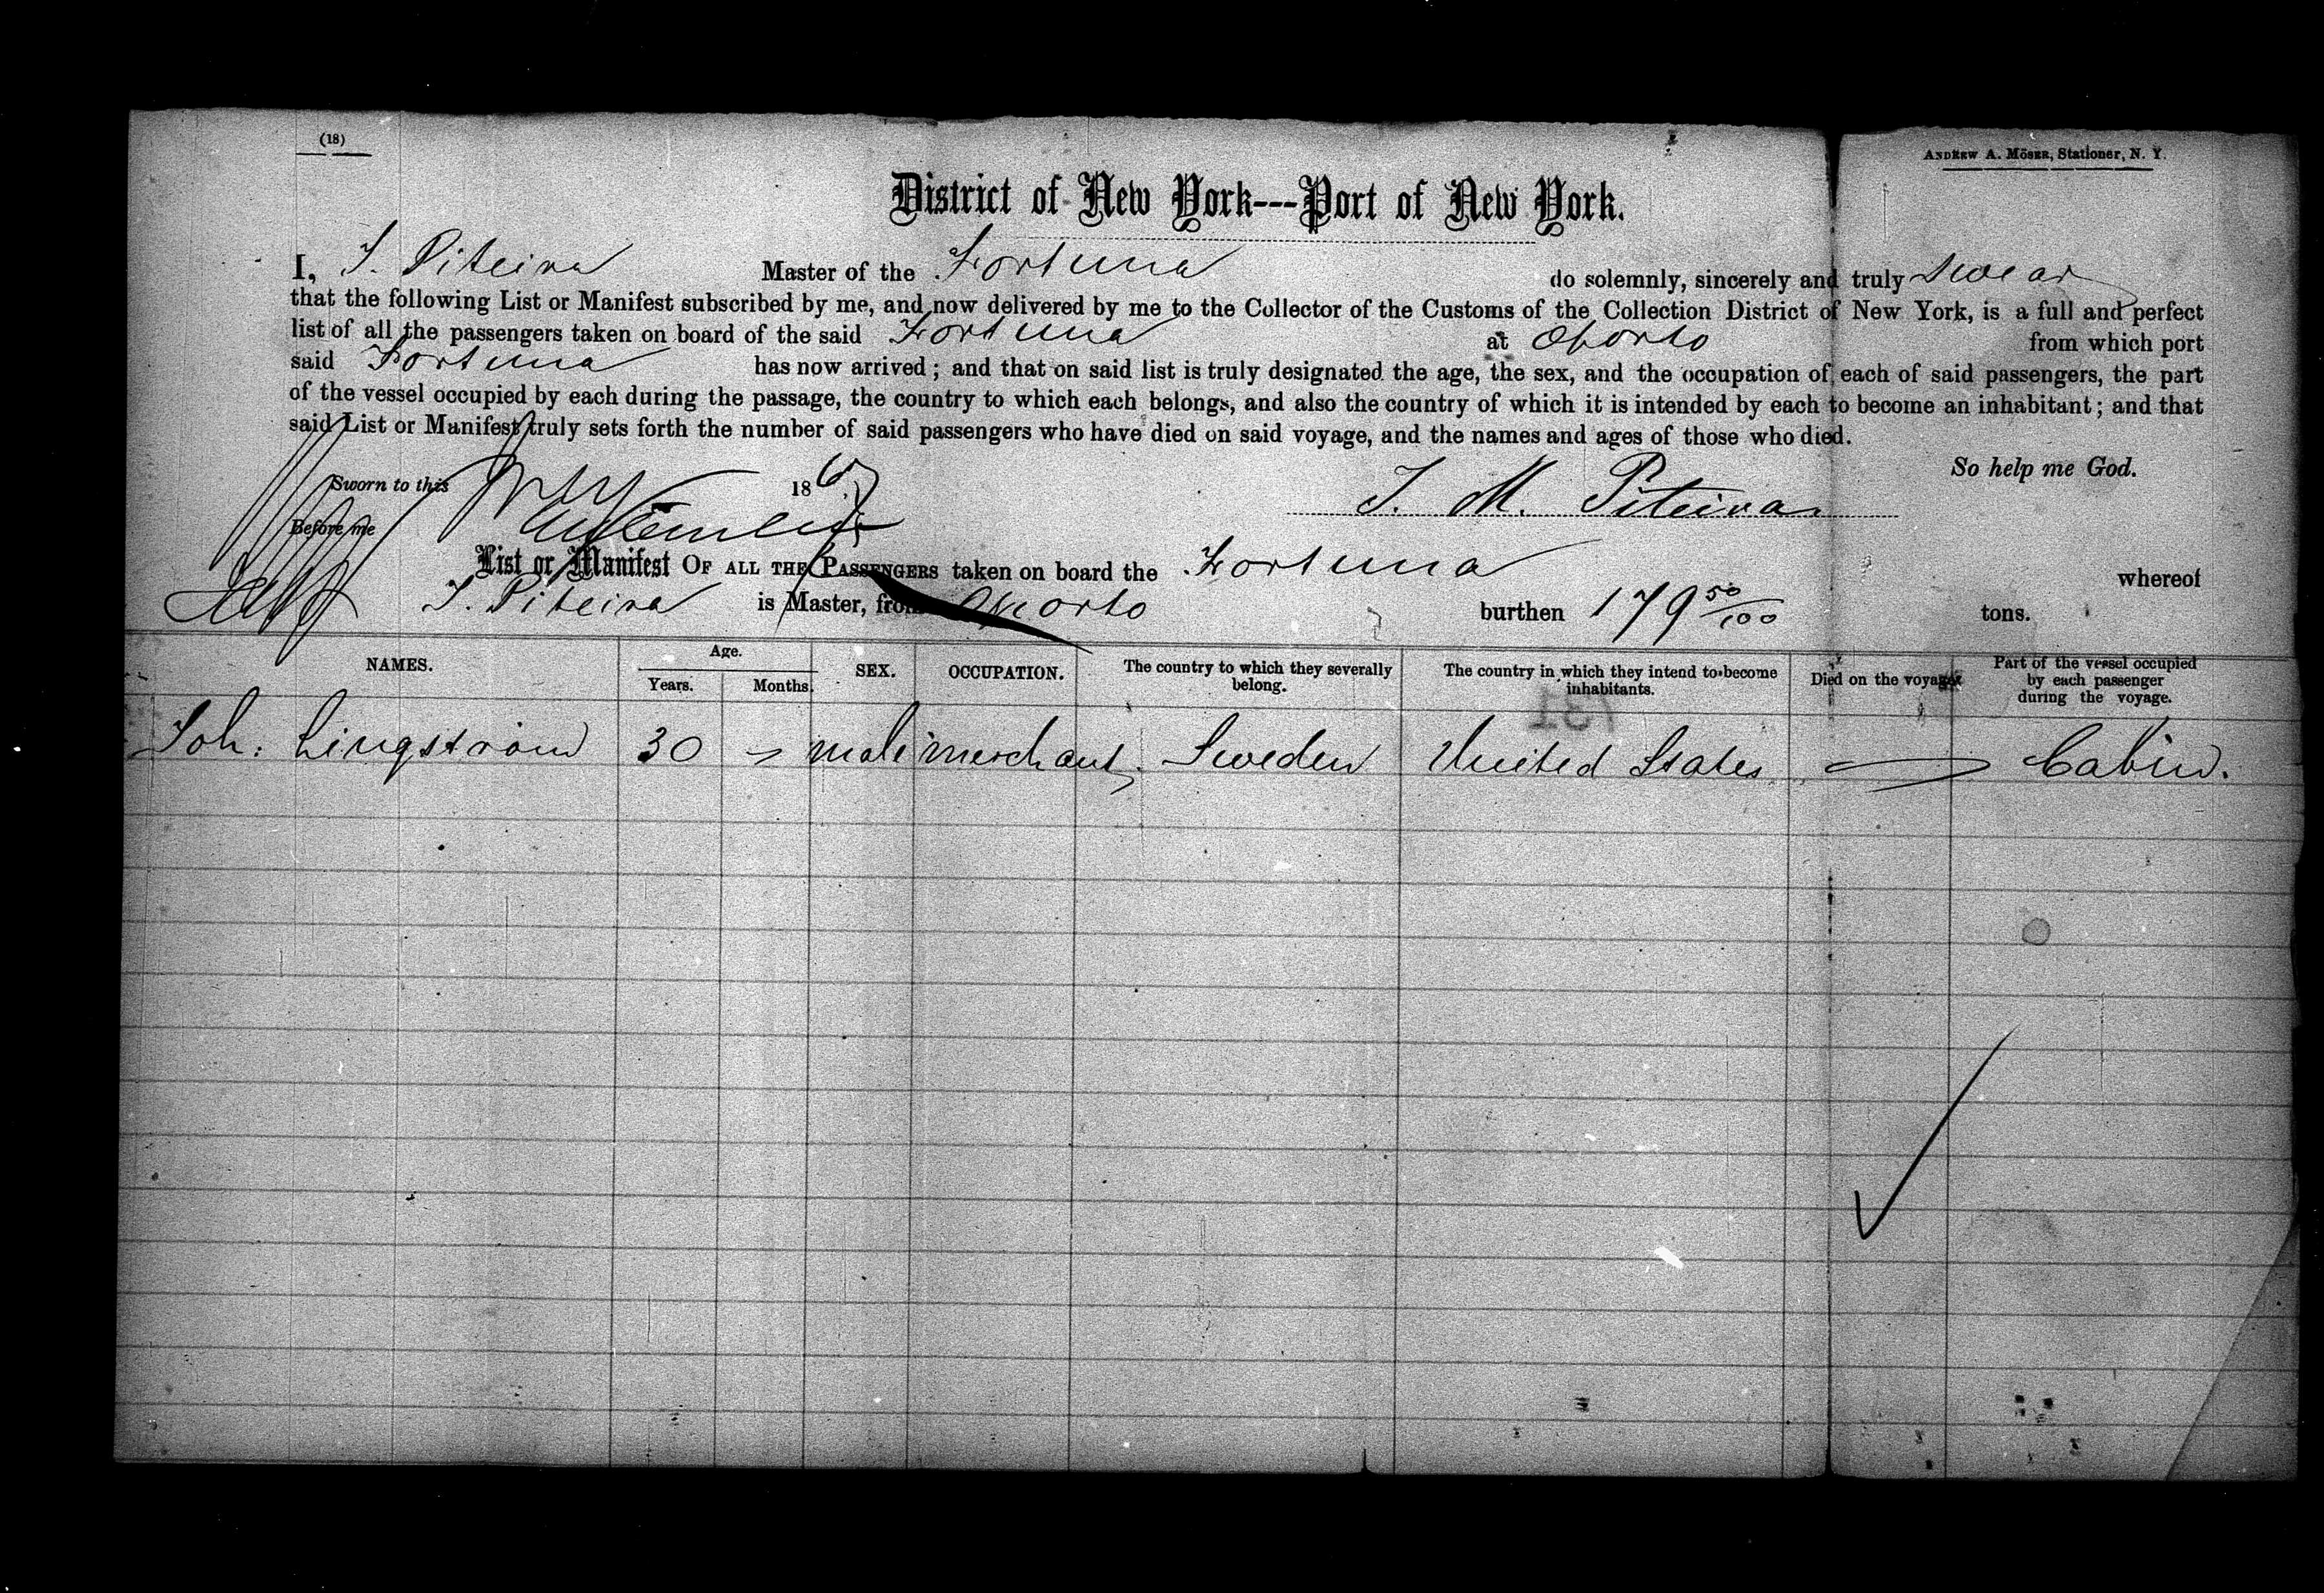 (18)
ANDREW A. MÖSER, Stationer, N. Y.
District of New York---Port of New York.
I, J. Piteira Master of the Fortuna do solemnly, sincerely and truly swear
that the following List or Manifest subscribed by me, and now delivered by me to the Collector of the Customs of the Collection District of New York, is a full and perfect
list of all the passengers taken on board of the said Fortuna at Oporto from which port
said Fortuna has now arrived; and that on said list is truly designated the age, the sex, and the occupation of each of said passengers, the part
of the vessel occupied by each during the passage, the country to which each belongs, and also the country of which it is intended by each to become an inhabitant; and that
said List or Manifest truly sets forth the number of said passengers who have died on said voyage, and the names and ages of those who died.
So help me God.
Sworn to this 186
J. M. Piteira
Before me
List or Manifest OF ALL THE PASSENGERS taken on board the Fortuna whereof
J. Piteira is Master, from Oporto burthen 179 50/100 tons.
NAMES. Age. Years. Months. SEX. OCCUPATION. The country to which they severally belong. The country in which they intend to become inhabitants. Died on the voyage. Part of the vessel occupied by each passenger during the voyage.
731
Joh. Lingström 30 male merchant Sweden United States Cabin.